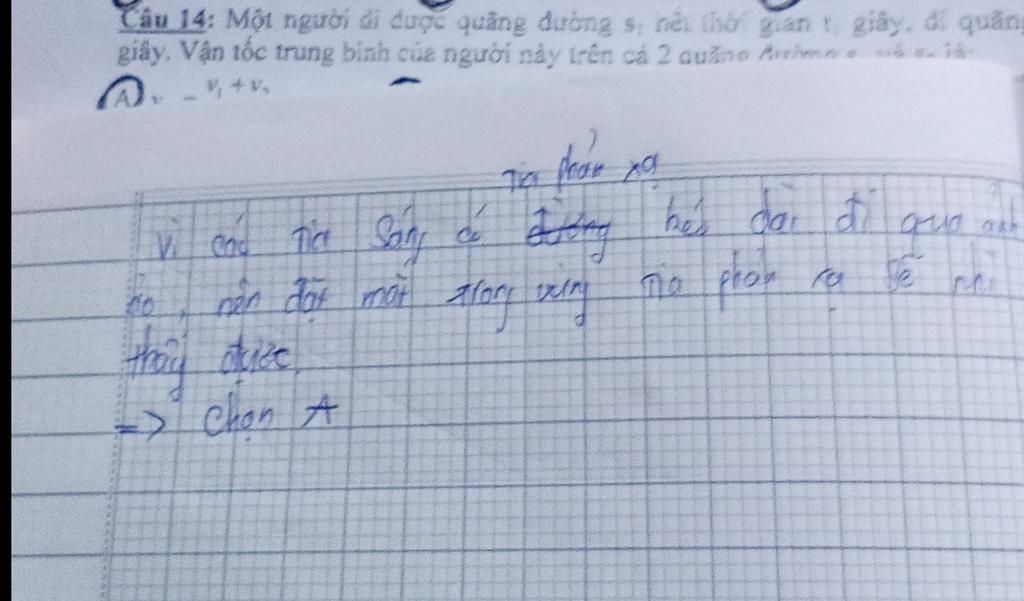 Câu 14: Một người đi được quãng đường s₁ hết thời gian t₁ giây. đi quãng
giây. Vận tốc trung bình của người này trên cả 2 quãng đường s₁ và s₂ là:
A
v₁ + v₂
Tia phản xạ
Vì các tia sáng có đường kéo dài đi qua ảnh
ảo, nên đặt mắt trong vùng tia phản xạ sẽ nhìn
thấy được.
=> Chọn A